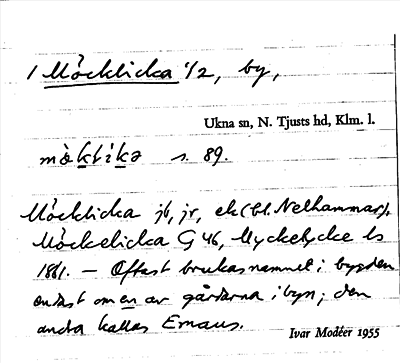 1 Möcklicka 1/2, by,
Ukna sn, N. Tjusts hd, Klm. l.
s. 89.
Möcklicka jb, jr, ek (bl. Nelhammar),
Möckelicka G 46, Myckelycke ls
1881. — Oftast brukas namnet i bygden
endast om en av gårdarna i byn; den
andra kallas Emaus.
Ivar Modéer 1955